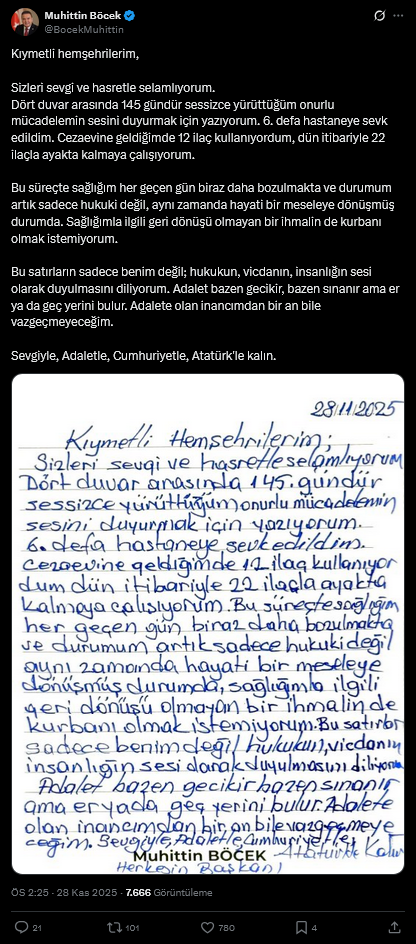 Muhittin Böcek
@BocekMuhittin
Kıymetli hemşehrilerim,
Sizleri sevgi ve hasretle selamlıyorum.
Dört duvar arasında 145 gündür sessizce yürüttüğüm onurlu
mücadelemin sesini duyurmak için yazıyorum. 6. defa hastaneye sevk
edildim. Cezaevine geldiğimde 12 ilaç kullanıyordum, dün itibariyle 22
ilaçla ayakta kalmaya çalışıyorum.
Bu süreçte sağlığım her geçen gün biraz daha bozulmakta ve durumum
artık sadece hukuki değil, aynı zamanda hayati bir meseleye dönüşmüş
durumda. Sağlığımla ilgili geri dönüşü olmayan bir ihmalin de kurbanı
olmak istemiyorum.
Bu satırların sadece benim değil; hukukun, vicdanın, insanlığın sesi
olarak duyulmasını diliyorum. Adalet bazen gecikir, bazen sınanır ama er
ya da geç yerini bulur. Adalete olan inancımdan bir an bile
vazgeçmeyeceğim.
Sevgiyle, Adaletle, Cumhuriyetle, Atatürk'le kalın.
28/11/2025
Kıymetli Hemşehrilerim;
Sizleri sevgi ve hasretle selamlıyorum
Dört duvar arasında 145. gündür
sessizce yürüttüğüm, onurlu mücadelemin
sesini duyurmak için yazıyorum.
6. defa hastaneye sevk edildim.
Cezaevine geldiğimde 12 ilaç kullanıyor
dum dün itibariyle 22 ilaçla ayakta
kalmaya çalışıyorum. Bu süreçte sağlığım
her geçen gün biraz daha bozulmakta
ve durumum artık sadece hukuki değil
aynı zamanda hayati bir meseleye
dönüşmüş durumda, sağlığımla ilgili
geri dönüşü olmayan bir ihmalin de
kurbanı olmak istemiyorum. Bu satırlar
sadece benim değil hukukun, vicdanın
insanlığın sesi olarak duyulmasını diliyorum
Adalet bazen gecikir bazen sınanır
ama er yada geç yerini bulur. Adalete
olan inancımdan bir an bile vazgeçmeye
ceğim. Sevgiyle, Adaletle, Cumhuriyetle,
Atatürkle Kalın
Muhittin BÖCEK
Herkesin Başkanı
ÖS 2:25 · 28 Kas 2025 · 7.666 Görüntüleme
21
107
780
4